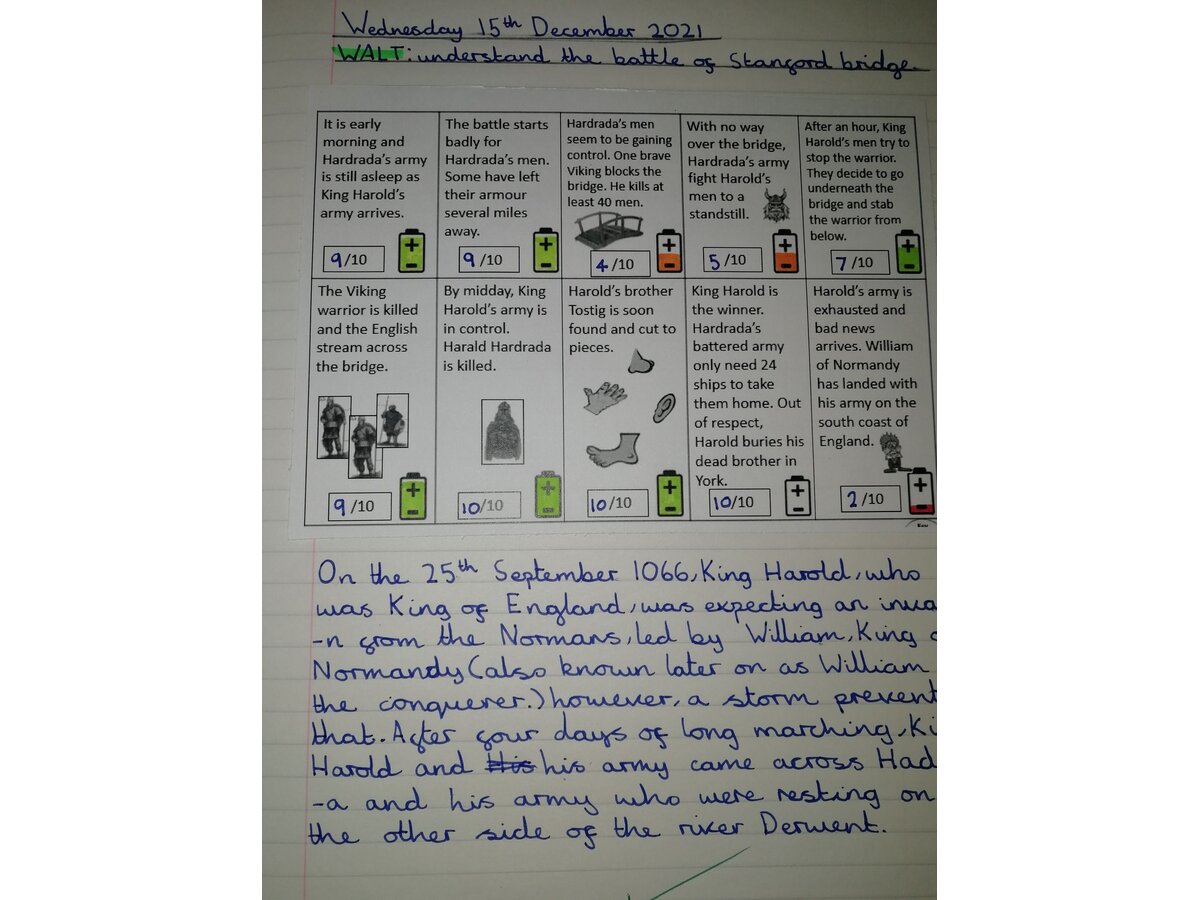 Wednesday 15th December 2021
WALT: understand the battle of Stanford bridge.
It is early
morning and
Hardrada's army
is still asleep as
King Harold's
army arrives.
9/10
The battle starts
badly for
Hardrada's men.
Some have left
their armour
several miles
away.
9/10
Hardrada's men
seem to be gaining
control. One brave
Viking blocks the
bridge. He kills at
least 40 men.
4/10
With no way
over the bridge,
Hardrada's army
fight Harold's
men to a
standstill.
5/10
After an hour, King
Harold's men try to
stop the warrior.
They decide to go
underneath the
bridge and stab
the warrior from
below.
7/10
The Viking
warrior is killed
and the English
stream across
the bridge.
9/10
By midday, King
Harold's army is
in control.
Harald Hardrada
is killed.
10/10
Harold's brother
Tostig is soon
found and cut to
pieces.
10/10
King Harold is
the winner.
Hardrada's
battered army
only need 24
ships to take
them home. Out
of respect,
Harold buries his
dead brother in
York.
10/10
Harold's army is
exhausted and
bad news
arrives. William
of Normandy
has landed with
his army on the
south coast of
England.
2/10
On the 25th September 1066, King Harold, who
was King of England, was expecting an inva
-n from the Normans, led by William, King
Normandy (also known later on as William
the conquerer.) however, a storm prevent
that. After four days of long marching, Ki
Harold and his army came across Had
-a and his army who were resting on
the other side of the river Derwent.